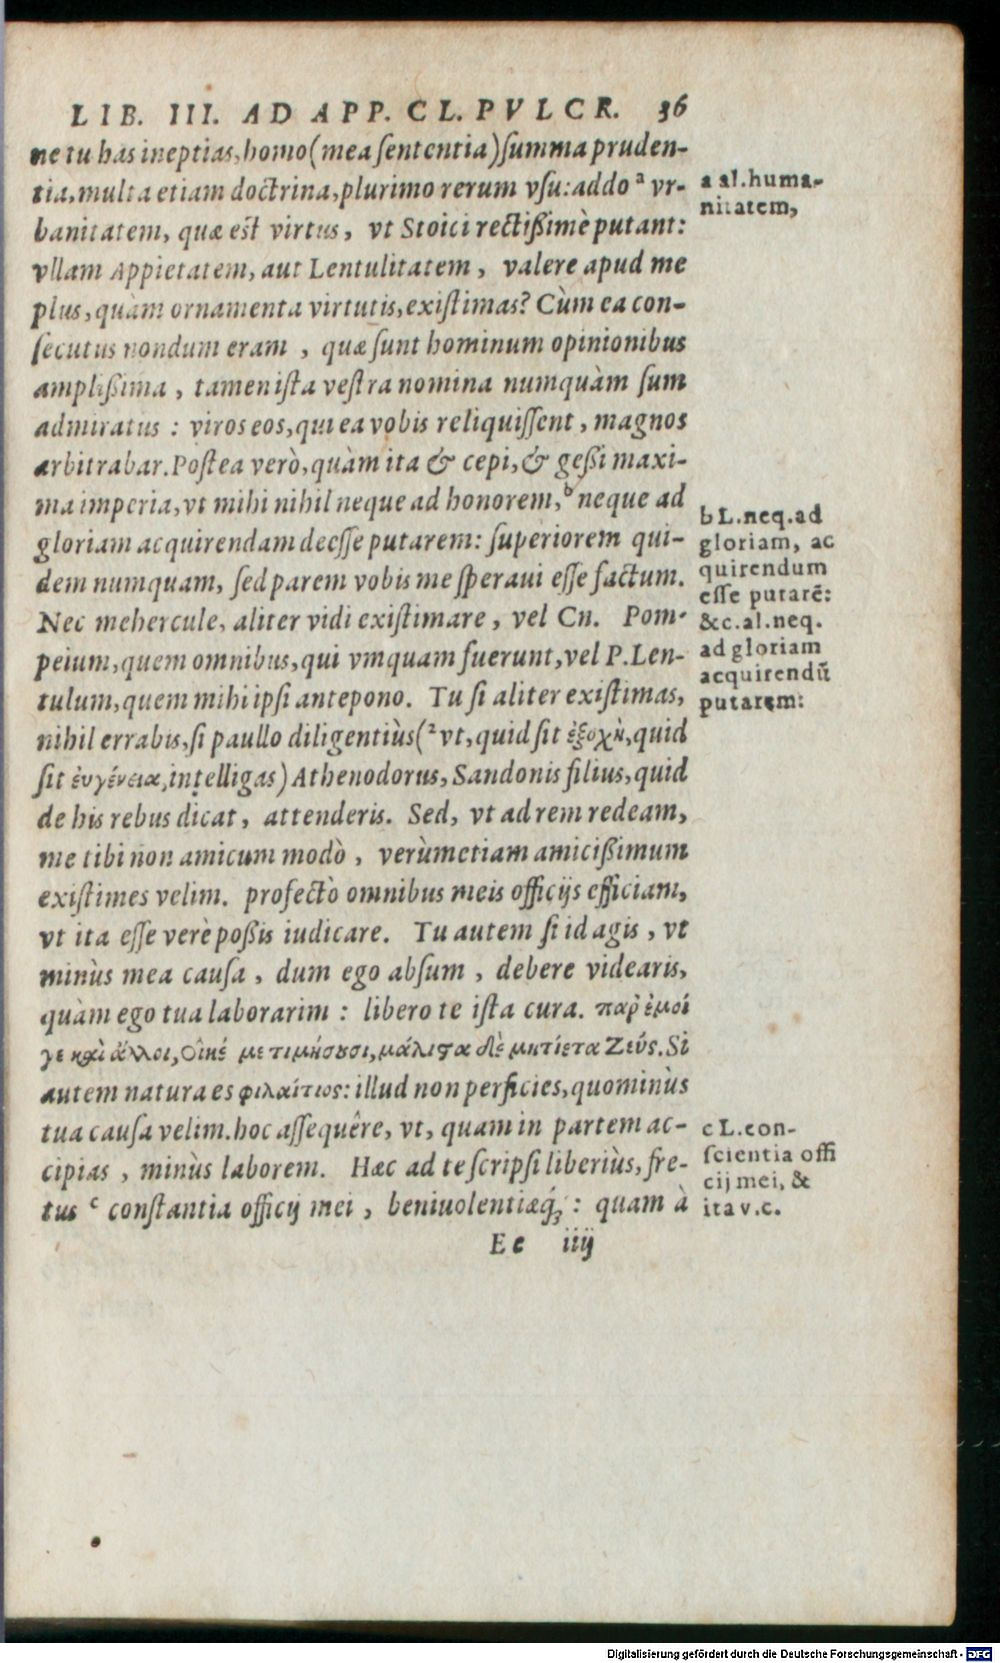 LIB. III. AD APP. CL. PVLCR. 36
ne tu has ineptias, homo (mea sententia) summa pruden-
tia, multa etiam doctrina, plurimo rerum vsu: addo ª vr-
banitatem, quæ est virtus, vt Stoici rectißimè putant:
vllam Appietatem, aut Lentulitatem, valere apud me
plus, quàm ornamenta virtutis, existimas? Cùm ea con-
secutus nondum eram, quæ sunt hominum opinionibus
amplißima, tamen ista vestra nomina numquàm sum
admiratus: viros eos, qui ea vobis reliquissent, magnos
arbitrabar. Postea verò, quàm ita & cepi, & geßi maxi-
ma imperia, vt mihi nihil neque ad honorem, ᵇ neque ad
gloriam acquirendam deesse putarem: superiorem qui-
dem numquam, sed parem vobis me speraui esse factum.
Nec mehercule, aliter vidi existimare, vel Cn. Pom-
peium, quem omnibus, qui vmquam fuerunt, vel P. Len-
tulum, quem mihi ipsi antepono. Tu si aliter existimas,
nihil errabis, si paullo diligentiùs (² vt, quid sit ἐξοχὴ, quid
sit ἐυγένεια, intelligas) Athenodorus, Sandonis filius, quid
de his rebus dicat, attenderis. Sed, vt ad rem redeam,
me tibi non amicum modò, verùm etiam amicißimum
existimes velim. profectò omnibus meis officijs efficiam,
vt ita esse verè poßis iudicare. Tu autem si id agis, vt
minùs mea causa, dum ego absum, debere videaris,
quàm ego tua laborarim: libero te ista cura. παρ' ἐμοί
γε καὶ ἄλλοι, Οἵ κέ με τιμήσουσι, μάλιστα δὲ μητίετα Ζεύς. Si
autem natura es φιλαίτιος: illud non perficies, quominùs
tua causa velim. hoc assequêre, vt, quam in partem ac-
cipias, minùs laborem. Hæc ad te scripsi liberiùs, fre-
tus ᶜ constantia officij mei, beniuolentiæq́;: quam à
Ee iiij
a al. huma-
nitatem,
b L. neq. ad
gloriam, ac
quirendum
esse putarē:
&c. al. neq.
ad gloriam
acquirendū
putarem:
c L. con-
scientia offi
cij mei, &
ita v. c.
Digitalisierung gefördert durch die Deutsche Forschungsgemeinschaft - DFG